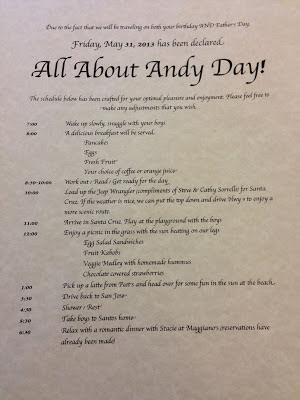 Due to the fact that we will be traveling on both your birthday AND Father's Day,
Friday, May 31, 2013 has been declared
All About Andy Day!
The schedule below has been crafted for your optimal pleasure and enjoyment. Please feel free to
make any adjustments that you wish.
7:00 Wake up slowly, snuggle with your boys
8:00 A delicious breakfast will be served.
Pancakes
Eggs
Fresh Fruit
Your choice of coffee or orange juice
8:30-10:00 Work out / Read / Get ready for the day
10:00 Load up the Jeep Wrangler (compliments of Steve & Cathy Sorrells) for Santa
Cruz. If the weather is nice, we can put the top down and drive Hwy 1 to enjoy a
more scenic route.
11:00 Arrive in Santa Cruz. Play at the playground with the boys
12:00 Enjoy a picnic in the grass with the sun beating on our legs
Egg Salad Sandwiches
Fruit Kabobs
Veggie Medley with homemade hummus
Chocolate covered strawberries
1:00 Pick up a latte from Peet's and head over for some fun in the sun at the beach.
3:30 Drive back to San Jose
4:30 Shower / Rest
5:30 Take boys to Santos home
6:30 Relax with a romantic dinner with Stacie at Maggiano's (reservations have
already been made)